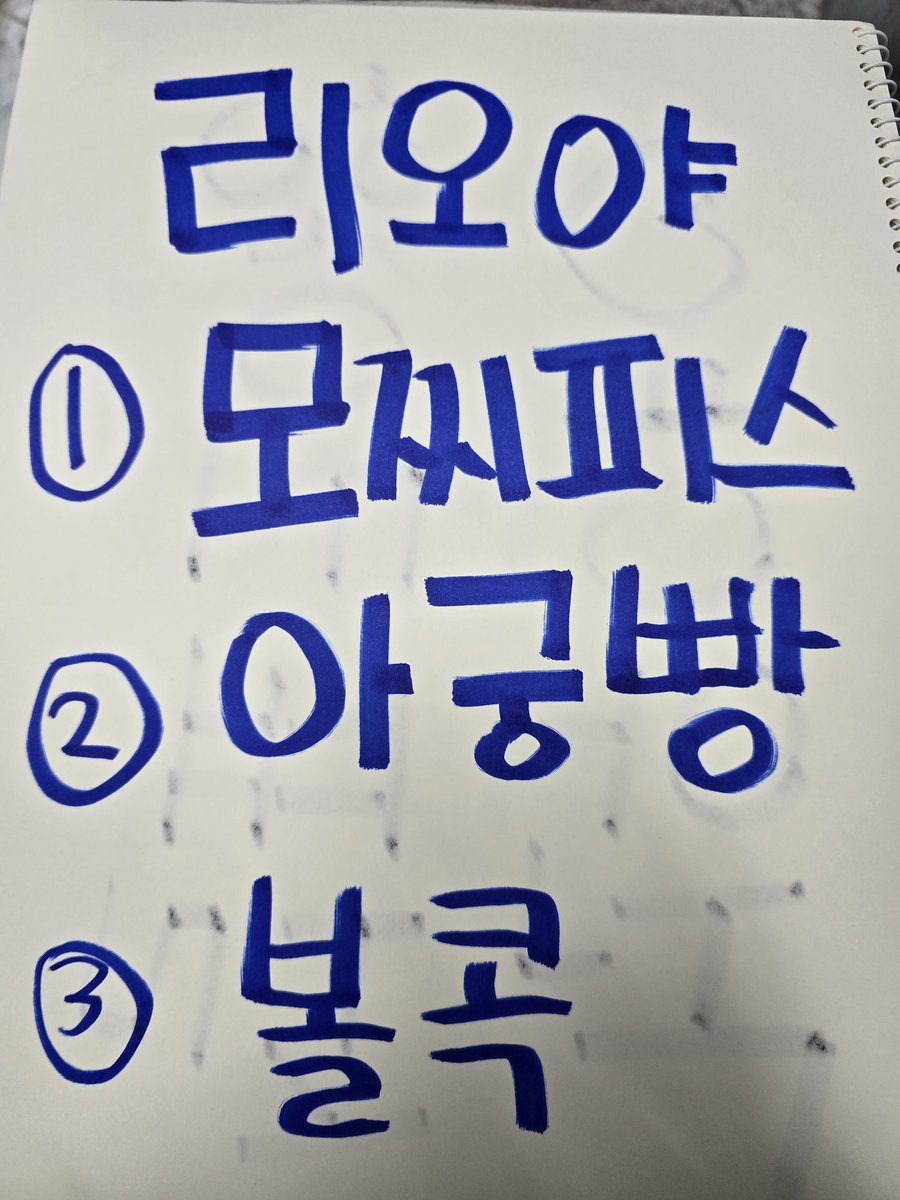 리오야
① 모찌피스
② 아궁빵
③ 볼콕